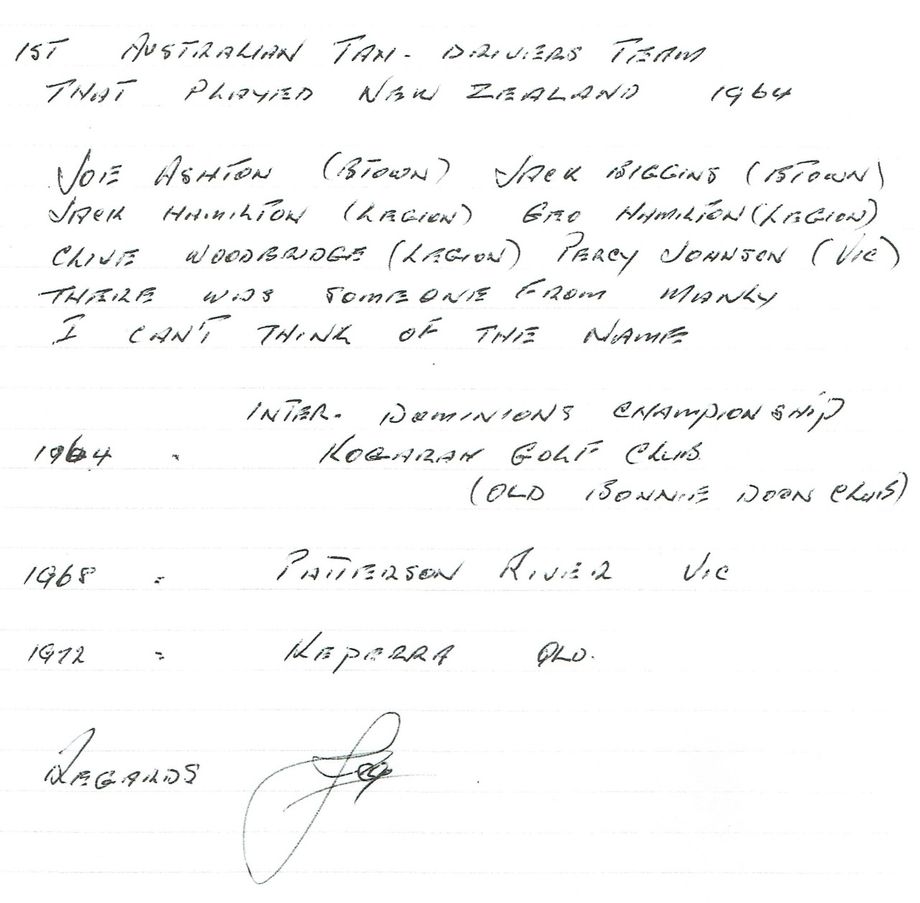 1ST AUSTRALIAN TAXI-DRIVERS TEAM
THAT PLAYED NEW ZEALAND 1964
JOE ASHTON (BTOWN) JACK BIGGINS (BTOWN)
JACK HAMILTON (LEGION) GEO HAMILTON (LEGION)
CLIVE WOODBRIDGE (LEGION) PERCY JOHNSON (VIC)
THERE WAS SOMEONE FROM MANLY
I CAN'T THINK OF THE NAME
INTER. DOMINIONS CHAMPIONSHIP
1964 - KOGARAH GOLF CLUB
(OLD BONNIE DOON CLUB)
1968 = PATTERSON RIVER VIC
1972 = KEPERRA QLD.
REGARDS